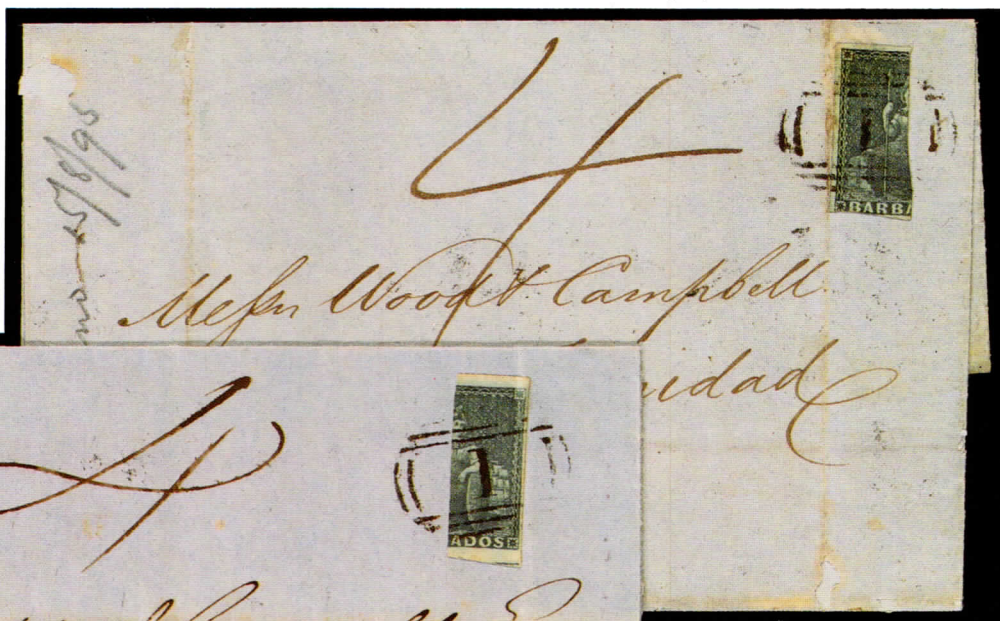 4
1
BARBA
5/8/95
Messrs Wood & Campbell
idad
4
1
ADOS